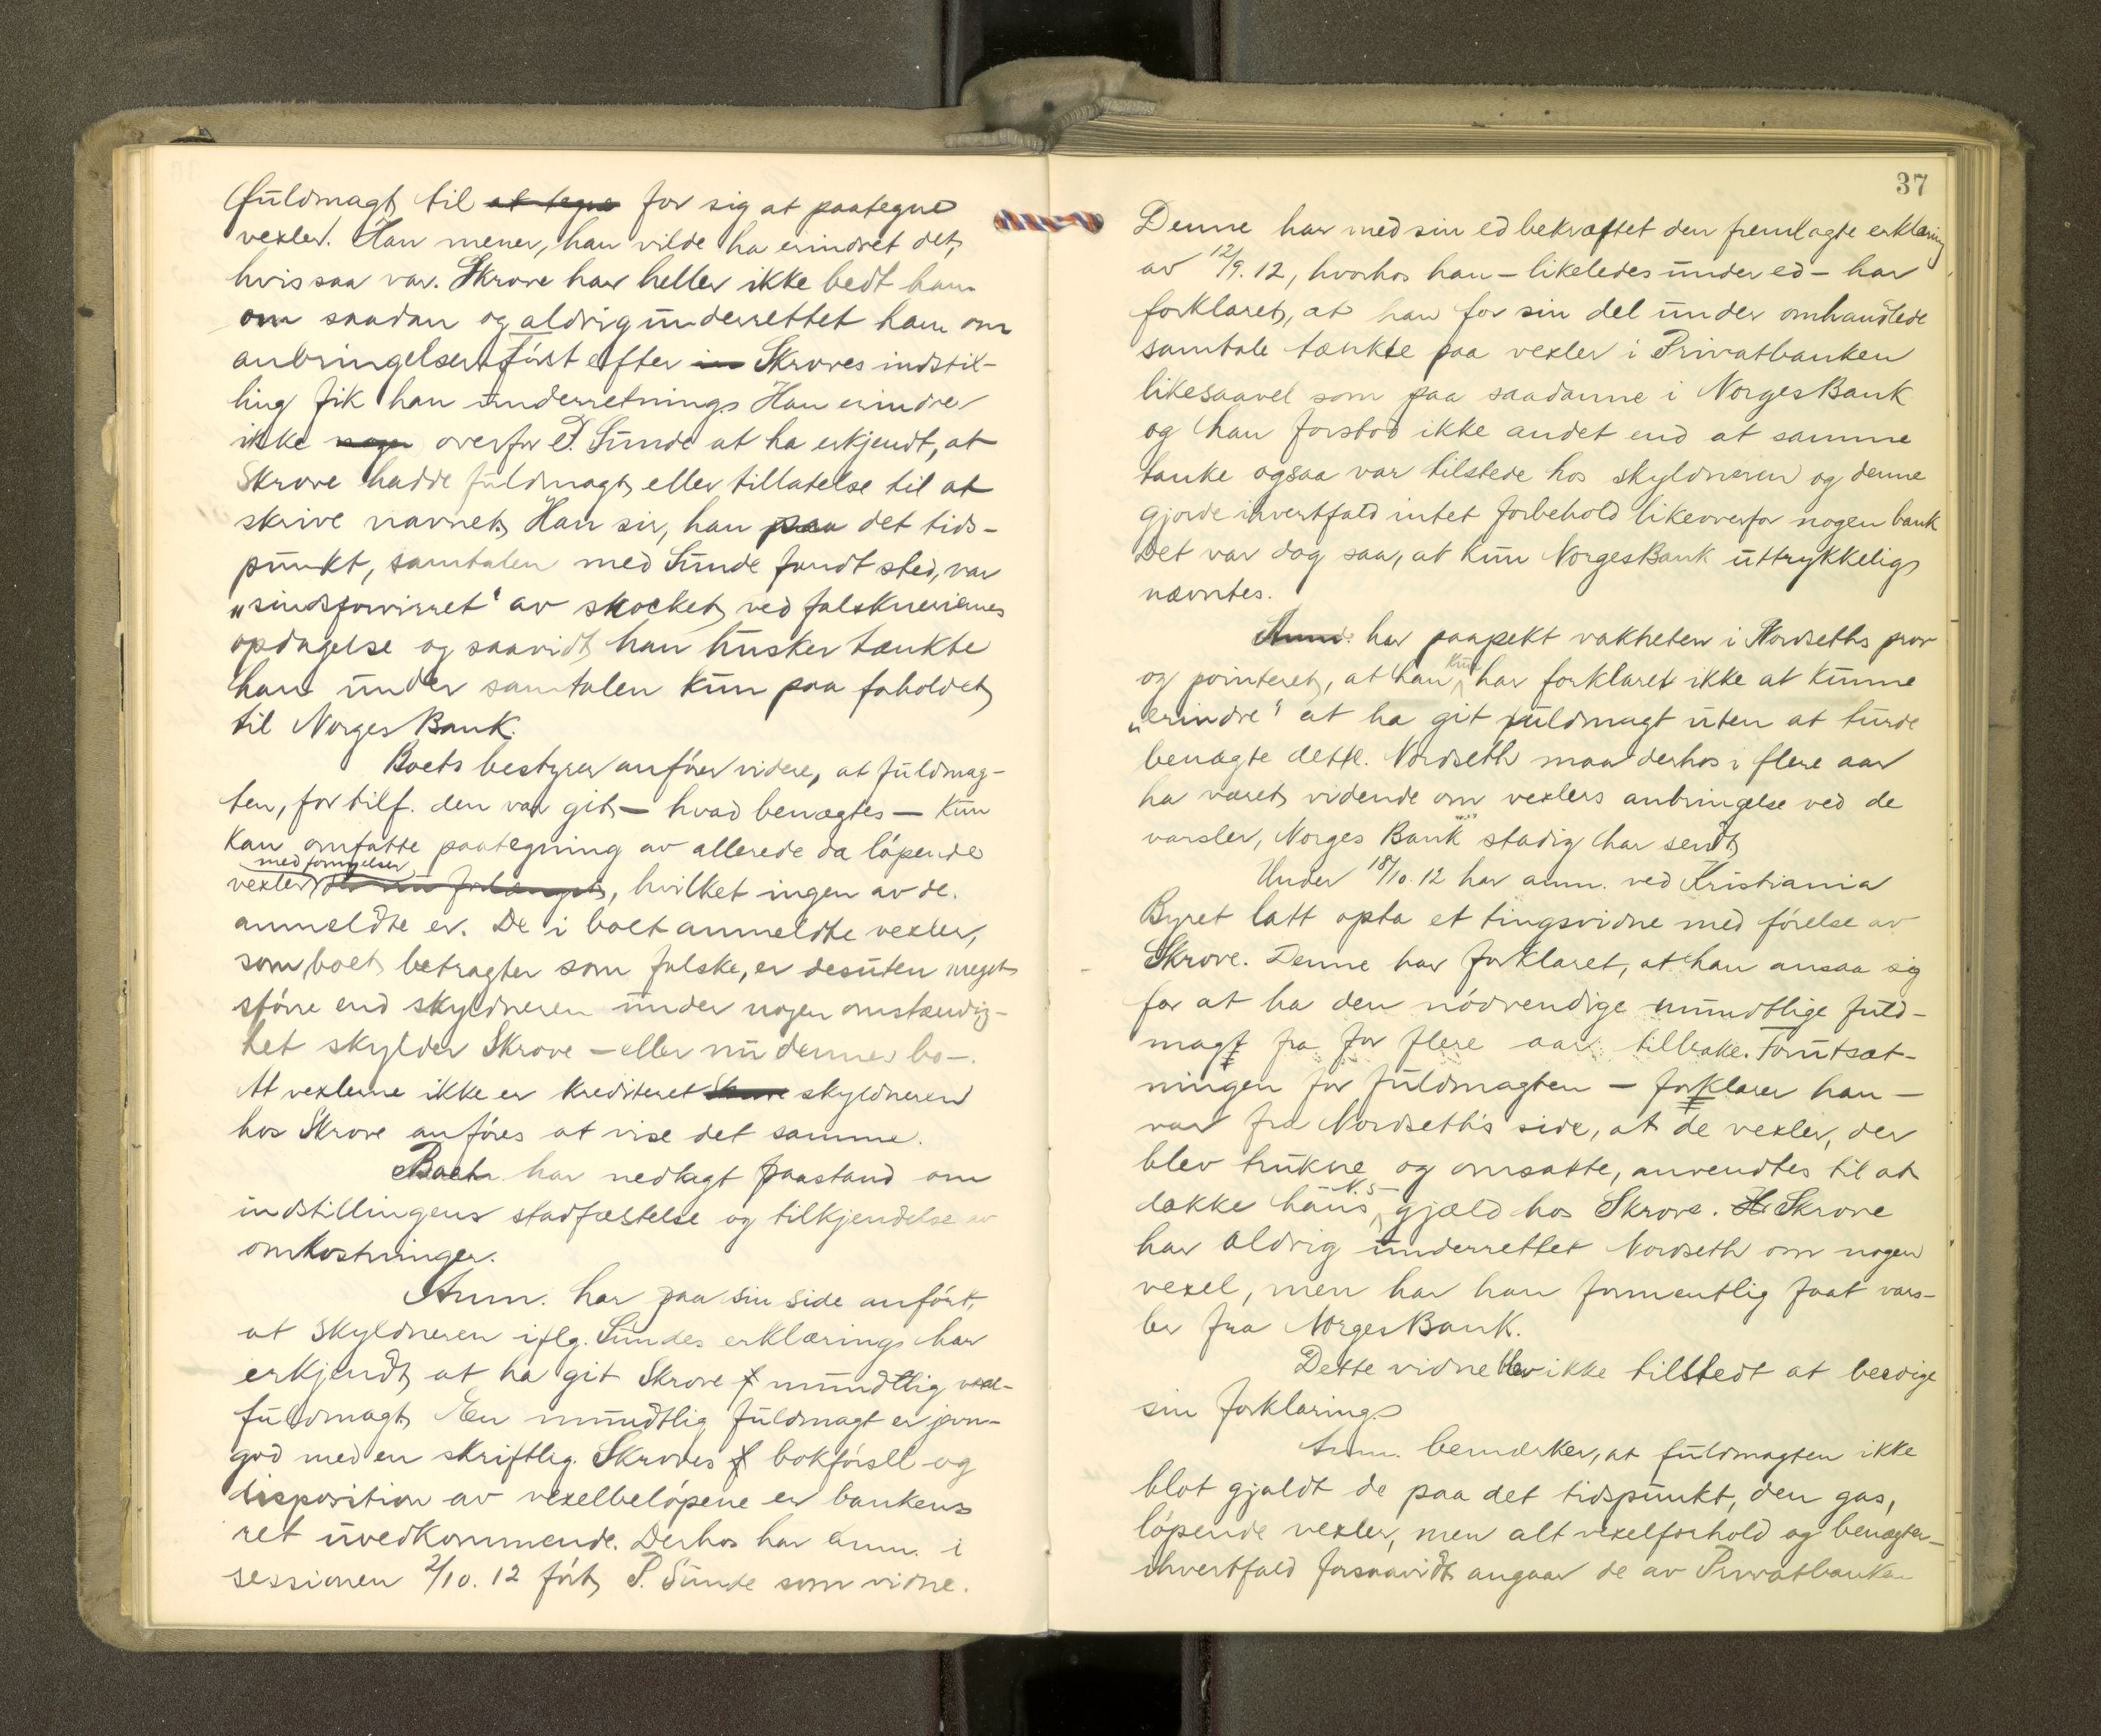 fuldmagt til at tegne for sig at paategne
vexler. Han mener, han vilde ha erindret det,
hvis saa var. Skrove har heller ikke bedt ham
om saadan og aldrig underrettet ham om
anbringelser. Først efter Skroves indstil-
ling fik han underretning. Han erindrer
ikke overfor P. Sunde at ha erkjendt, at
Skrove hadde fuldmagt eller tillatelse til at
skrive navnet. Han sir, han paa det tids-
punkt, samtalen med Sunde fandt sted, var
„sindsforvirret" av shocket ved falskneriernes
opdagelse og saavidt han husker tænkte
han under samtalen kun paa foholdet
til Norges Bank.
Boets bestyrer anfører videre, at fuldmag-
ten, for tilf. den var git – hvad benægtes – kun
kan omfatte paategning av allerede da løpende
med fornyelser
vexler, hvilket ingen av de
anmeldte er. De i boet anmeldte vexler,
som boet betragter som falske, er desuten meget
større end skyldneren under nogen omstændig-
het skylder Skrove – eller nu dennes bo –.
At vexlerne ikke er krediteret skyldneren
hos Skrove anføres at vise det samme.
Boet har nedlagt paastand om
indstillingens stadfæstelse og tilkjendelse av
omkostninger.
Anm. har paa sin side anført,
at skyldneren iflg. Sundes erklæring har
erkjendt at ha git Skrove mundtlig vexel-
fuldmagt. En mundtlig fuldmagt er jevn-
god med en skriftlig. Skroves bokførsel og
disposition av vexelbeløpene er bankens
ret uvedkommende. Derhos har anm. i
sessionen 2/10. 12 ført P. Sunde som vidne.
37
Denne har med sin ed bekræftet den fremlagte erklæring
av 12/9. 12, hvorhos han – likeledes under ed – har
forklaret, at han for sin del under omhandlede
samtale tænkte paa vexler i Privatbanken
likesaavel som paa saadanne i Norges Bank
og han forstod ikke andet end at samme
tanke ogsaa var tilstede hos skyldneren og denne
gjorde ihvertfald intet forbehold likeoverfor nogen bank
Det var dog saa, at kun Norges Bank uttrykkelig
nævntes.
Anm. har paapekt vakheten i Nordseths prov
og pointeret, at han kun har forklaret ikke at kunne
„erindre" at ha git fuldmagt uten at turde
benægte dette. Nordseth maa derhos i flere aar
ha været vidende om vexlers anbringelse ved de
varsler, Norges Bank stadig har sendt
Under 18/10. 12 har anm. ved Kristiania
Byret latt opta et tingsvidne med førelse av
Skrove. Denne har forklaret, at han ansaa sig
for at ha den nødvendige mundtlige fuld-
magt fra for flere aar tilbake. Forutsæt-
ningen for fuldmagten – forklarer han –
var fra Nordseth's side, at de vexler, der
blev trukne og omsatte, anvendtes til at
dække hans N.s gjæld hos Skrove. Skrove
har aldrig underrettet Nordseth om nogen
vexel, men har han formentlig faat vars-
ler fra Norges Bank.
Dette vidne blev ikke tilstedt at beedige
sin forklaring.
Anm. bemærker, at fuldmagten ikke
blot gjaldt de paa det tidspunkt, den gas,
løpende vexler, men alt vexelforhold og benægter
ihvertfald forsaavidt angaar de av Privatbanken